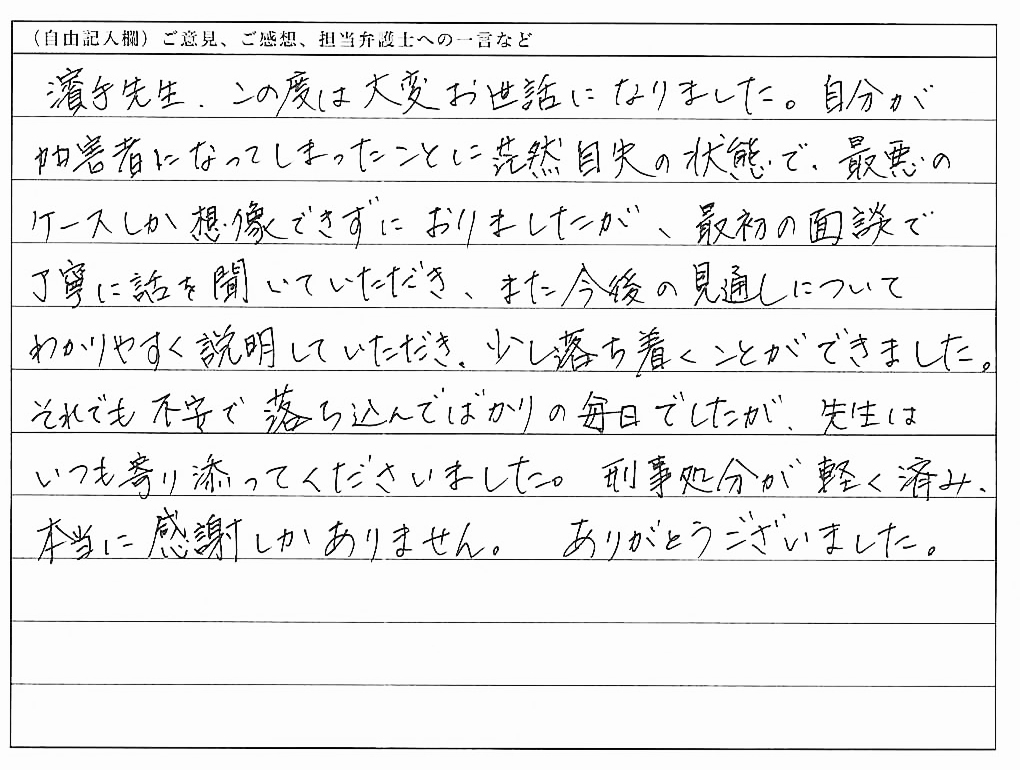 （自由記入欄）ご意見、ご感想、担当弁護士への一言など
濱手先生、この度は大変お世話になりました。自分が
加害者になってしまったことに茫然自失の状態で、最悪の
ケースしか想像できずにおりましたが、最初の面談で
丁寧に話を聞いていただき、また今後の見通しについて
わかりやすく説明していただき、少し落ち着くことができました。
それでも不安で落ち込んでばかりの毎日でしたが、先生は
いつも寄り添ってくださいました。刑事処分が軽く済み、
本当に感謝しかありません。 ありがとうございました。